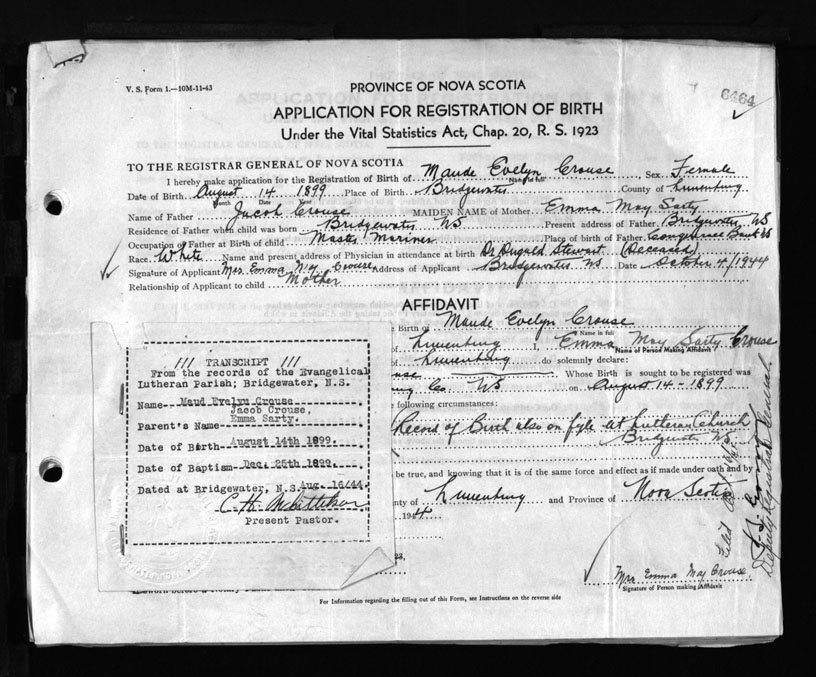 V. S. Form 1.—10M-11-43
PROVINCE OF NOVA SCOTIA
6464
APPLICATION FOR REGISTRATION OF BIRTH
Under the Vital Statistics Act, Chap. 20, R. S. 1923
TO THE REGISTRAR GENERAL OF NOVA SCOTIA
I hereby make application for the Registration of Birth of Maude Evelyn Crouse, Sex Female
Name in full
Date of Birth August 14 1899 Place of Birth Bridgewater County of Lunenburg
Month Date Year
Name of Father Jacob Crouse MAIDEN NAME of Mother Emma May Sarty
Residence of Father when child was born Bridgewater NS Present address of Father Bridgewater NS
Occupation of Father at Birth of child Master Mariner Place of birth of Father
Race White Name and present address of Physician in attendance at birth Dr Dugald Stewart (Deceased)
Signature of Applicant Mrs. Emma May Crouse Address of Applicant Bridgewater NS Date October 4/1944
Relationship of Applicant to child Mother
AFFIDAVIT
Birth of Maude Evelyn Crouse
Name in full
of Lunenburg I, Emma May Sarty Crouse
Name of Person Making Affidavit
of Lunenburg do solemnly declare:
Whose Birth is sought to be registered was
Co. NS on August 14 - 1899
following circumstances:
Record of Birth also on fyle at Lutheran Church
Bridgewater NS.
be true, and knowing that it is of the same force and effect as if made under oath and by
of Lunenburg and Province of Nova Scotia
1944
Mrs Emma May Crouse
Signature of Person making Affidavit
For Information regarding the filling out of this Form, see Instructions on the reverse side
/// TRANSCRIPT ///
From the records of the Evangelical
Lutheran Parish; Bridgewater, N.S.
Name-- Maud Evelyn Crouse
Jacob Crouse,
Parent's Name-- Emma Sarty.
Date of Birth-- August 14th 1899.
Date of Baptism-- Dec. 25th 1899.
Dated at Bridgewater, N.S. Aug. 16/44.
C. H. Whitteker
Present Pastor.
Filed
Deputy Registrar General